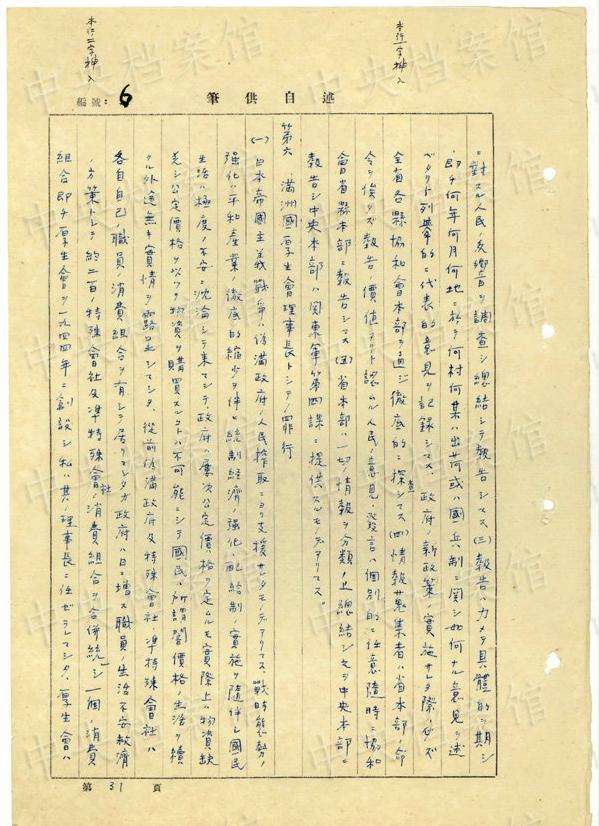 本行一字挿入
本行二字挿入
編號：6
筆供自述
ニ對スル人民ノ反響音ヲ調査シ總結シテ報告シマス(三)報告ハカメテ具體的ニ期シ
即チ何年何月何地ニ於テ何村何某ハ出荷或ハ國兵制ニ関シ如何ナル意見ヲ述
ベタリト列擧的ニ代表的意見ヲ記録シマス、政府ノ新政策ノ實施サレタ際ハ必ズ
全省各縣協和會本部ヲ通ジ徹底的ニ探査シマス(四)情報蒐集者ハ省本部ノ命
令ヲ俟タズ報告ノ價値アリト認ムル人民ノ意見、發言ハ個別的ニ任意隨時ニ協和
會省縣本部ニ報告シマス(五)省本部ハ一切ノ情報ヲ分類ノ上總結シ之ヲ中央本部ニ
報告シ中央本部ハ関東軍第四課ニ提供スルモノデアリマス。
第六 満洲國厚生會理事長トシテノ罪行
(一)日本帝國主義戰爭ハ偽満政府ノ人民搾取ニヨリ支援サレタモノデアリマス、戰時態勢ノ
強化ハ平和産業ノ徹底的縮少ヲ伴ヒ統制経濟ノ強化、配給制ノ實施ヲ隨伴シ國民
生活ハ極度ノ不安ニ沈淪シテ来マシテ政府ハ屡次公定價格ヲ定ムルモ實際上ハ物資缺
乏シ公定價格ヲ以テ物資ヲ購買スルコトハ不可能ニシテ國民ハ所謂闇價格ノ生活ヲ續
クル外途無キ實情ヲ露呈シマシタ、從前偽満政府及特殊會社、準特殊會社ハ
各自自己ノ職員ノ消費組合ヲ有シテ居リマシタガ政府ハ日ニ増ス職員ノ生活不安救濟
ノ方策トシテ約二百ノ特殊會社及準特殊會社ノ消費組合ヲ合併統一シ一個ノ消費
組合即チ厚生會ヲ一九四四年ニ創設シ私ハ其ノ理事長ニ任ゼラレマシタ、厚生會ハ
第 31 頁
中央档案馆